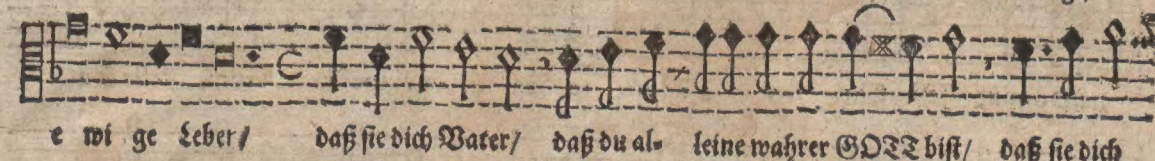 e wi ge Leber/ daß sie dich Vater/ daß du al- leine wahrer GOTT bist/ daß sie dich